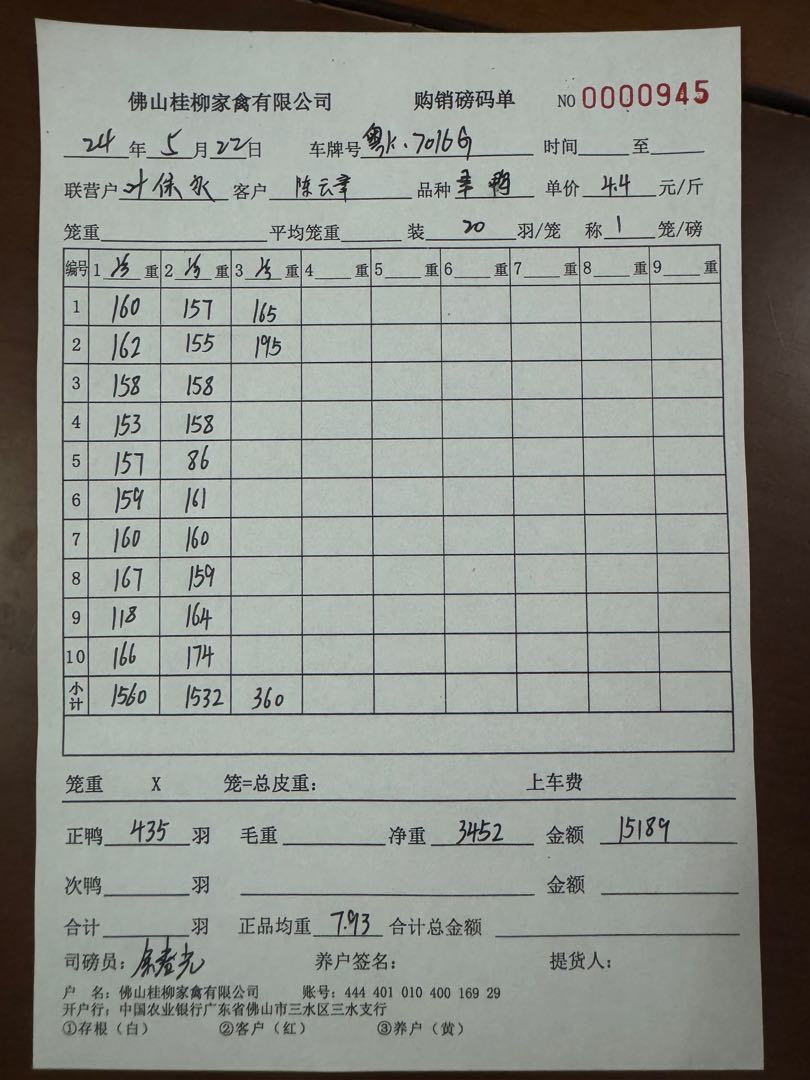 佛山桂柳家禽有限公司 购销磅码单 NO 0000945
24 年 5 月 22 日 车牌号 粤K·7016G 时间 至
联营户 叶保 客户 陈云 品种 鸭 单价 4.4 元/斤
笼重 平均笼重 装 20 羽/笼 称 1 笼/磅
编号 1 重 2 重 3 重 4 重 5 重 6 重 7 重 8 重 9 重
1 160 157 165
2 162 155 195
3 158 158
4 153 158
5 157 86
6 159 161
7 160 160
8 167 159
9 118 164
10 166 174
小计 1560 1532 360
笼重 X 笼=总皮重: 上车费
正鸭 435 羽 毛重 净重 3452 金额 15189
次鸭 羽 金额
合计 羽 正品均重 7.93 合计总金额
司磅员: 养户签名: 提货人:
户 名: 佛山桂柳家禽有限公司 账号: 444 401 010 400 169 29
开户行: 中国农业银行广东省佛山市三水区三水支行
①存根（白） ②客户（红） ③养户（黄）